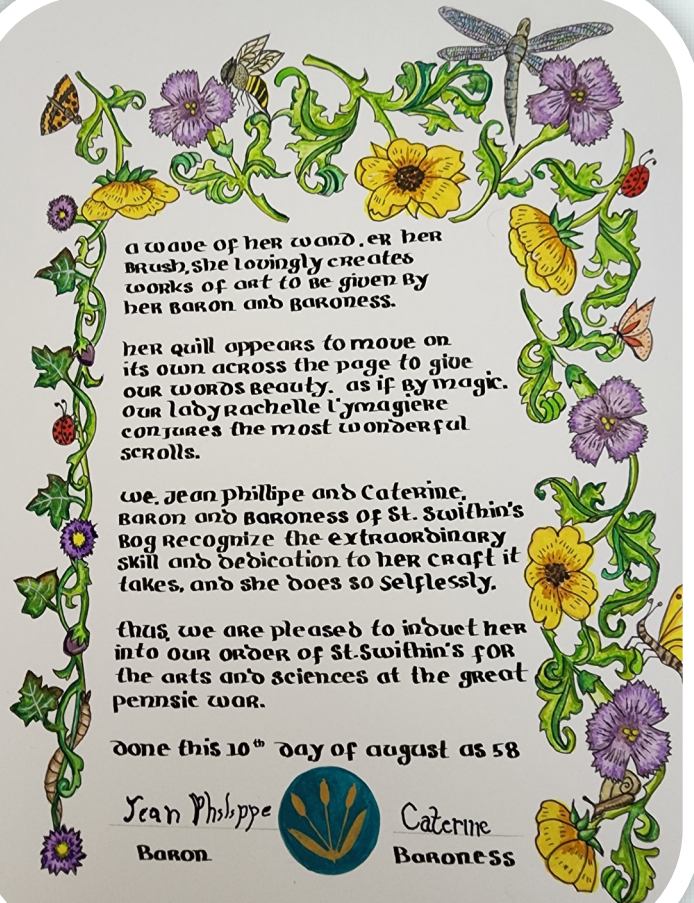 a wave of her wand, er her
Brush, she lovingly creates
works of art to be given By
her Baron and Baroness.
her quill appears to move on
its own across the page to give
our words Beauty. as if By magic.
our lady Rachelle l'ymagiere
conjures the most wonderful
scrolls.
we, Jean Phillipe and Caterine,
Baron and Baroness of St. Swithin's
Bog Recognize the extraordinary
skill and dedication to her craft it
takes, and she does so selflessly.
thus, we are pleased to induct her
into our order of St. Swithin's for
the arts and sciences at the great
pennsic war.
done this 10th day of august as 58
Jean Philippe Caterine
Baron Baroness